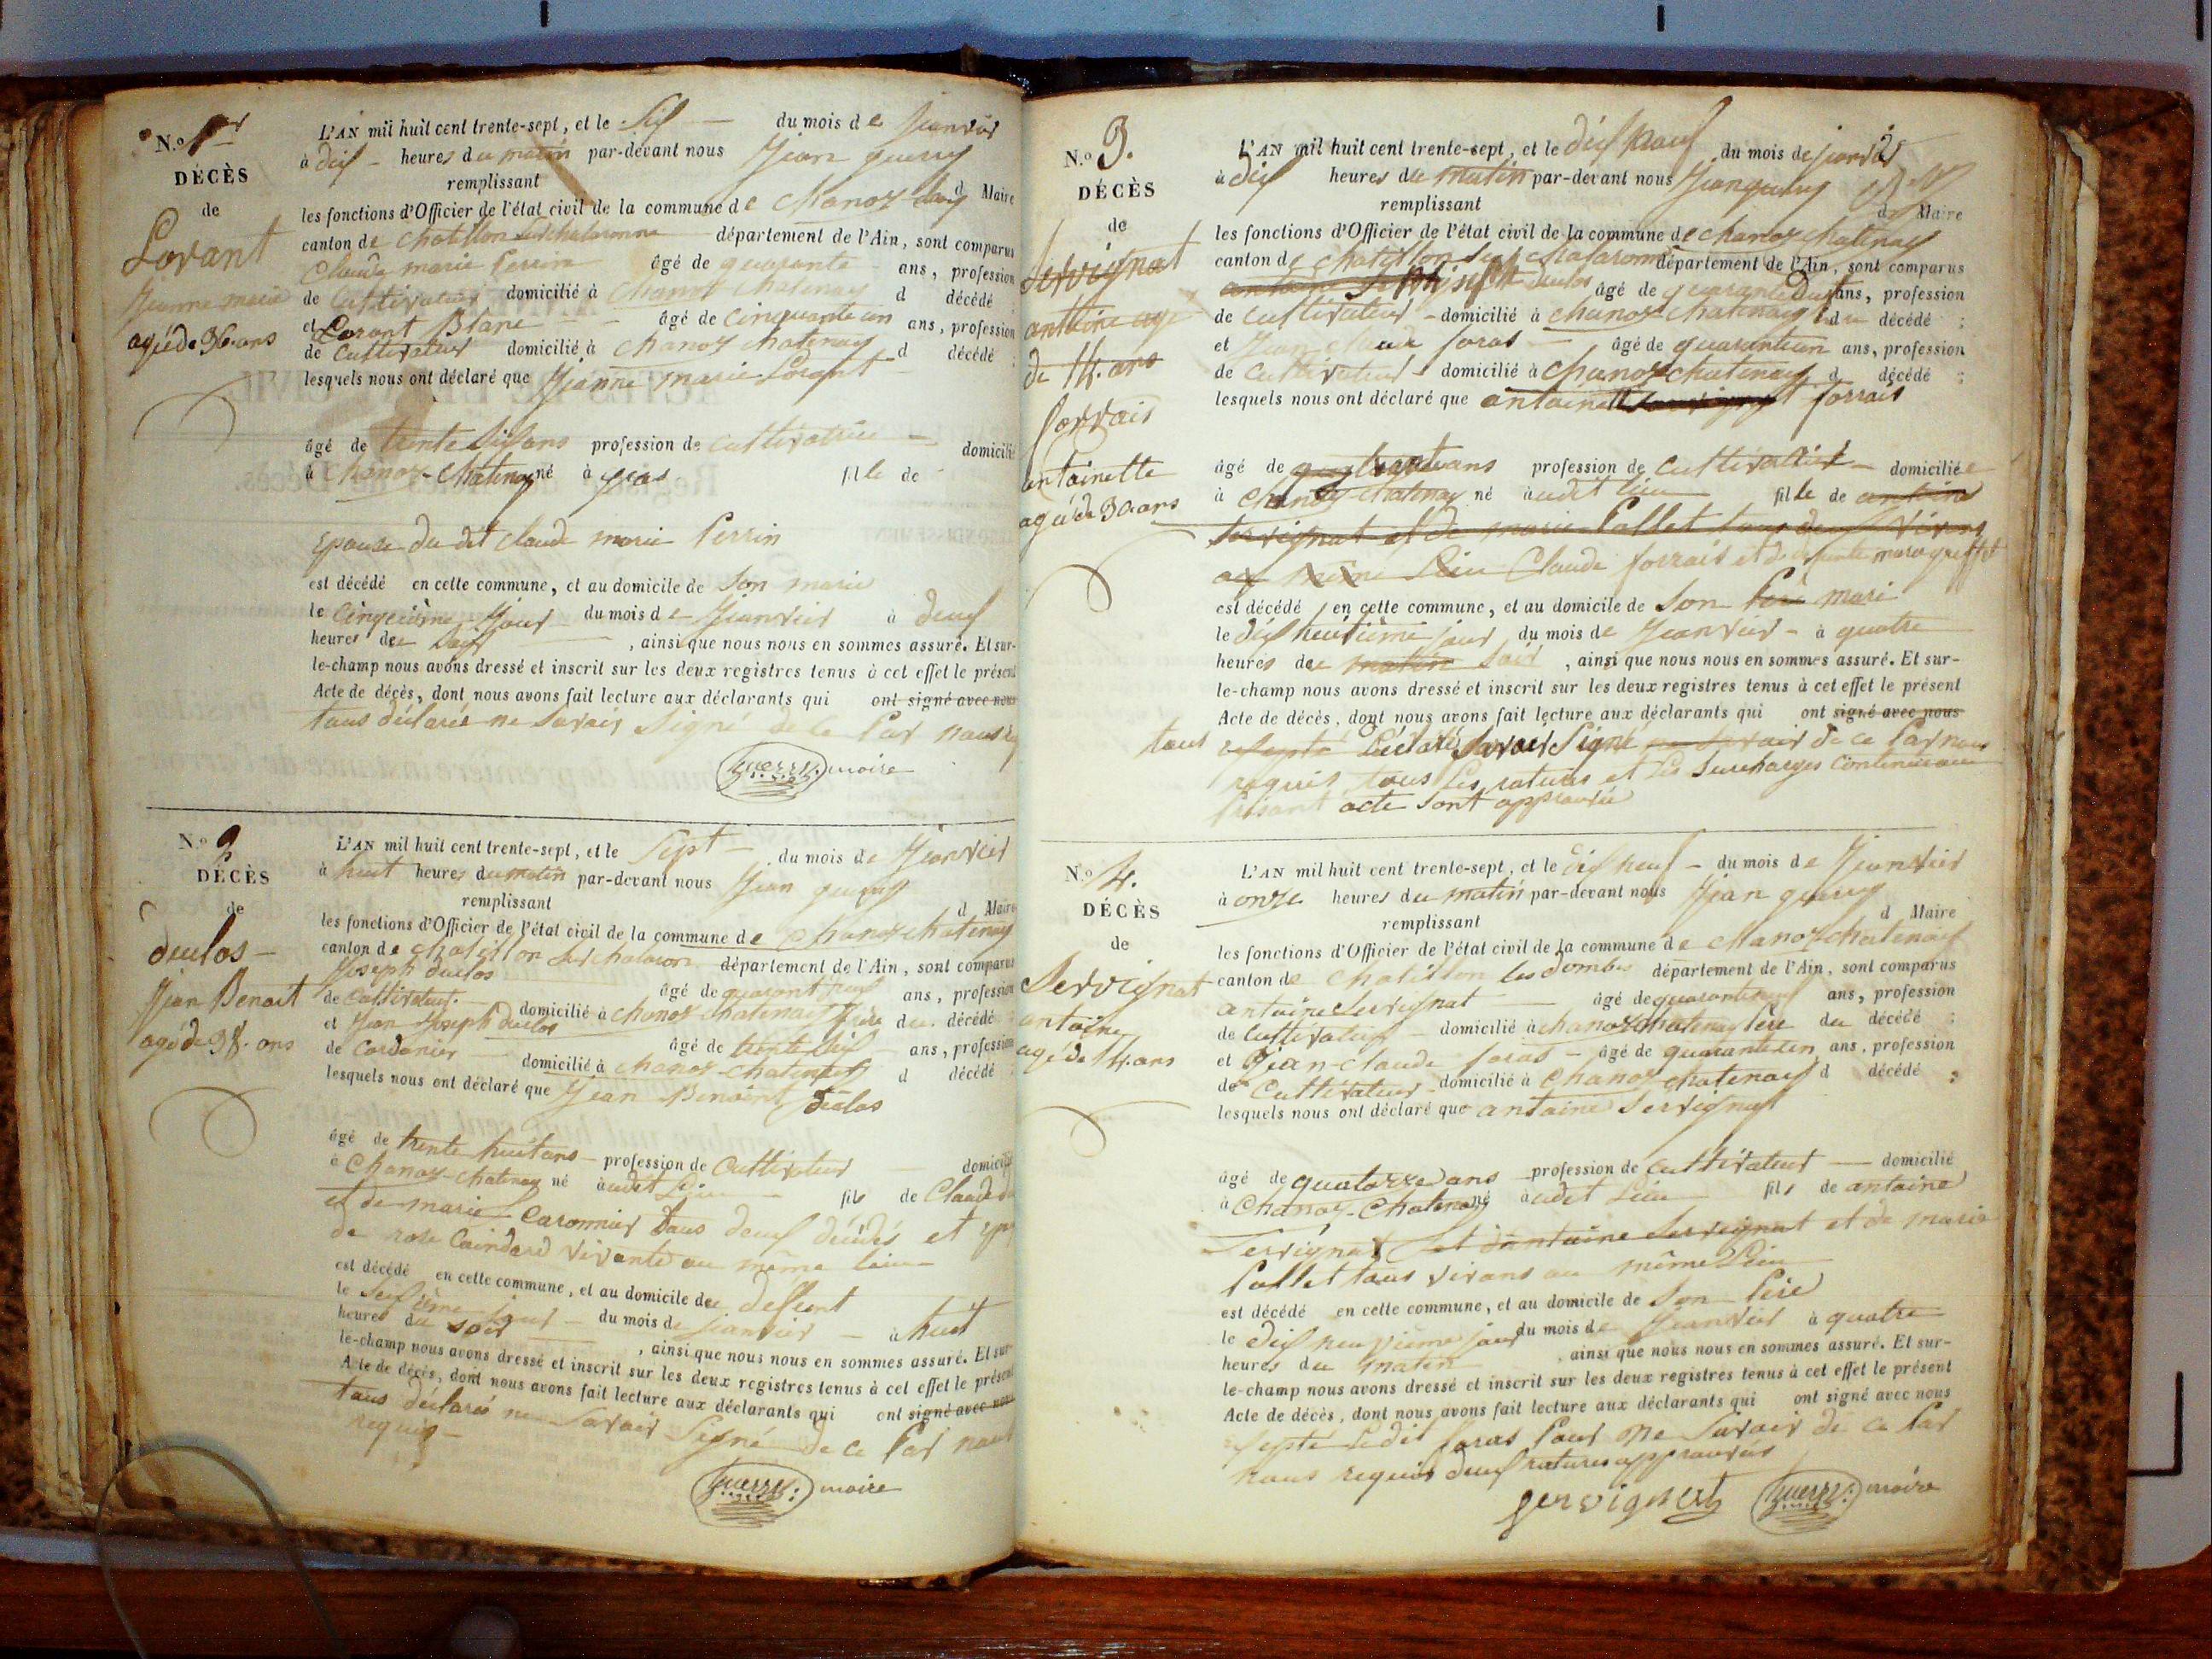 N.o 1er
DÉCÈS
de
Lorant
Jeanne marie
agée de 36. ans
L'AN mil huit cent trente-sept, et le Six du mois de Janvier
à dix heures du matin par-devant nous Jean guerry
remplissant d Maire
les fonctions d'Officier de l'état civil de la commune de Chanoz
canton de chatillon sur chalaronne département de l'Ain, sont comparus
Claude marie Perrin âgé de quarante ans, profession
de Cultivateur domicilié à Chanoz chatenay d décédé
et Lorant Blanc âgé de cinquante un ans, profession
de Cultivateur domicilié à Chanoz chatenay d décédé ;
lesquels nous ont déclaré que Jeanne marie Lorant
âgé de trente Six ans profession de cultivatrice domicilié
à Chanoz-Chatenay né à fille de
Epouse du dit claude marie Perrin
est décédé en cette commune, et au domicile de Son marie
le Cinqeième Jour du mois de Jeanvier à deux
heures de , ainsi que nous nous en sommes assuré. Et sur-
le-champ nous avons dressé et inscrit sur les deux registres tenus à cet effet le présent
Acte de décès, dont nous avons fait lecture aux déclarants qui ont signé avec nous
tous déclarés ne Savoir Signé de ce Par nous
guerry: maire
N.o 2
DÉCÈS
de
duclos
Jean Benoit
agé de 38. ans
L'AN mil huit cent trente-sept, et le Sept du mois de Jeanvier
à huit heures du matin par-devant nous Jean guerry
remplissant d Maire
les fonctions d'Officier de l'état civil de la commune de Chanoz chatenay
canton de chatillon sur chalaron département de l'Ain, sont comparus
Joseph duclos âgé de quarant neuf ans, profession
de Cultivateur domicilié à chanoz chatenay frère du décédé
et Jean Joseph duclos âgé de trente six ans, profession
de Cordonier domicilié à chanoz-chatenay d décédé ;
lesquels nous ont déclaré que Jean Benoint duclos
âgé de trente huit ans profession de Cultivateur domicilié
à Chanoz-chatenay né audit Lieu fils de Claude
et de marie Caronnier tous deux décédés et
de rose Caindard vivente au même lieu
est décédé en cette commune, et au domicile du deffunt
le Sixième jour du mois de Jeanvier à huit
heures du soir , ainsi que nous nous en sommes assuré. Et sur-
le-champ nous avons dressé et inscrit sur les deux registres tenus à cet effet le présent
Acte de décès, dont nous avons fait lecture aux déclarants qui ont signé avec nous
tous déclarés ne Savoir Signé de ce Par nous
requis
guerry: maire
N.o 3.
DÉCÈS
de
Servignat
antoine agé
de 14. ans
forrais
antoinette
agée de 30 ans
L'AN mil huit cent trente-sept, et le dix neuf du mois de janvier
à dix heures du matin par-devant nous Jean guerry
remplissant d Maire
les fonctions d'Officier de l'état civil de la commune de chanoz chatenay
canton de chatillon sur chalaronne département de l'Ain, sont comparus
duclos âgé de quarante ans, profession
de cultivateur domicilié à chanoz chatenay du décédé ;
et Jean claude foras âgé de quarante un ans, profession
de cultivateur domicilié à chanoz chatenay d décédé ;
lesquels nous ont déclaré que antoinette forrais
âgé de ans profession de cultivatrice domiciliée
à Chanoz-chatenay né audit lieu fille de antoine
Servignat et de marie Pallet tous deux vivans
au même Lieu Claude forrais et de defunte
est décédé en cette commune, et au domicile de Son Père mari
le dix heuitième jour du mois de Jeanvier à quatre
heures du matin Soir , ainsi que nous nous en sommes assuré. Et sur-
le-champ nous avons dressé et inscrit sur les deux registres tenus à cet effet le présent
Acte de décès, dont nous avons fait lecture aux déclarants qui ont signé avec nous
tous déclaré Savoir Signé de ce Par nous
requis tous Les ratures et Les Surcharges
présent acte Sont approuvée
N.o 4.
DÉCÈS
de
Servignat
antoine
agé de 14. ans
L'AN mil huit cent trente-sept, et le dix neuf du mois de Jeanvier
à onze heures du matin par-devant nous Jean guerry
remplissant d Maire
les fonctions d'Officier de l'état civil de la commune de Chanoz chatenay
canton de chatillon les dombes département de l'Ain, sont comparus
antoine Servignat âgé de quarante ans, profession
de Cultivateur domicilié à chanoz chatenay Père du décédé ;
et Jean-claude foras âgé de quarante un ans, profession
de Cultivateur domicilié à Chanoz chatenay d décédé ;
lesquels nous ont déclaré que antoine Servignat
âgé de quatorze ans profession de cultivateur domicilié
à Chanoz-Chatenay né audit Lieu fils de antoine
Servignat et d'antoine Servignat et de marie
Pallet tous vivans au même Lieu
est décédé en cette commune, et au domicile de Son Père
le dix neuvième jour du mois de Jeanvier à quatre
heures du matin , ainsi que nous nous en sommes assuré. Et sur-
le-champ nous avons dressé et inscrit sur les deux registres tenus à cet effet le présent
Acte de décès, dont nous avons fait lecture aux déclarants qui ont signé avec nous
Ledit foras Pour ne Savoir de ce Par
nous requis deux ratures approuvées
Servignat guerry: maire